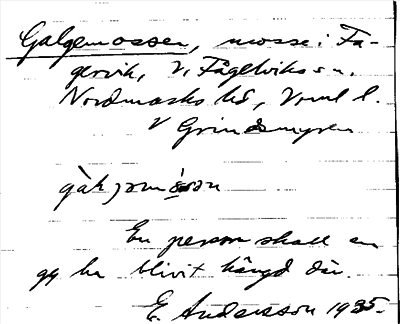 Galgemossen, mosse i Få-
gelvik, V. Fågelviks sn.
Nordmarks hd, Vrml l.
V Grindsmyren
En person skall en
gg ha blivit hängd där.
E. Andersson 1935.